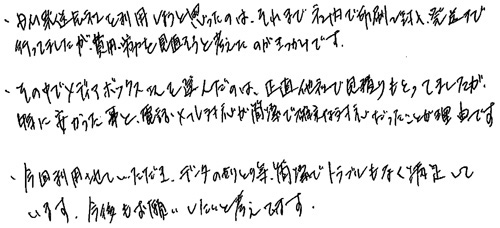 ・DM発送代行を利用しようと思ったのは、それまで社内で印刷、封入、発送まで
行っていたが、費用、労力を見直そうと考えたのがきっかけです。
・その中でメディアボックスさんを選んだのは、正直他社でも見積りもとってましたが、
特に安かった事と、電話・メール対応が簡潔で 対応だったことが理由です
・今回利用させていただき、データのやりとり等、簡潔でトラブルもなく満足して
います。今後もお願いしたいと考えてます。